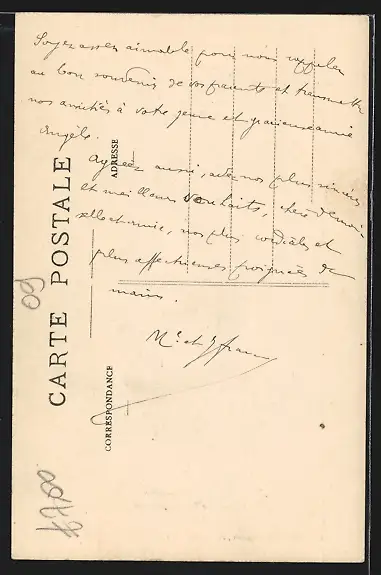 Soyez assez aimable pour nous rappeler
au bon souvenir de vos parents et transmettre
nos amitiés à votre jeune et gracieuse amie
Angèle.
Agréez aussi, avec nos plus sincères
et meilleurs souhaits, chère
et amie, nos plus cordiales et
plus affectueuses poignées de
mains.
M. et
CARTE POSTALE
ADRESSE
CORRESPONDANCE